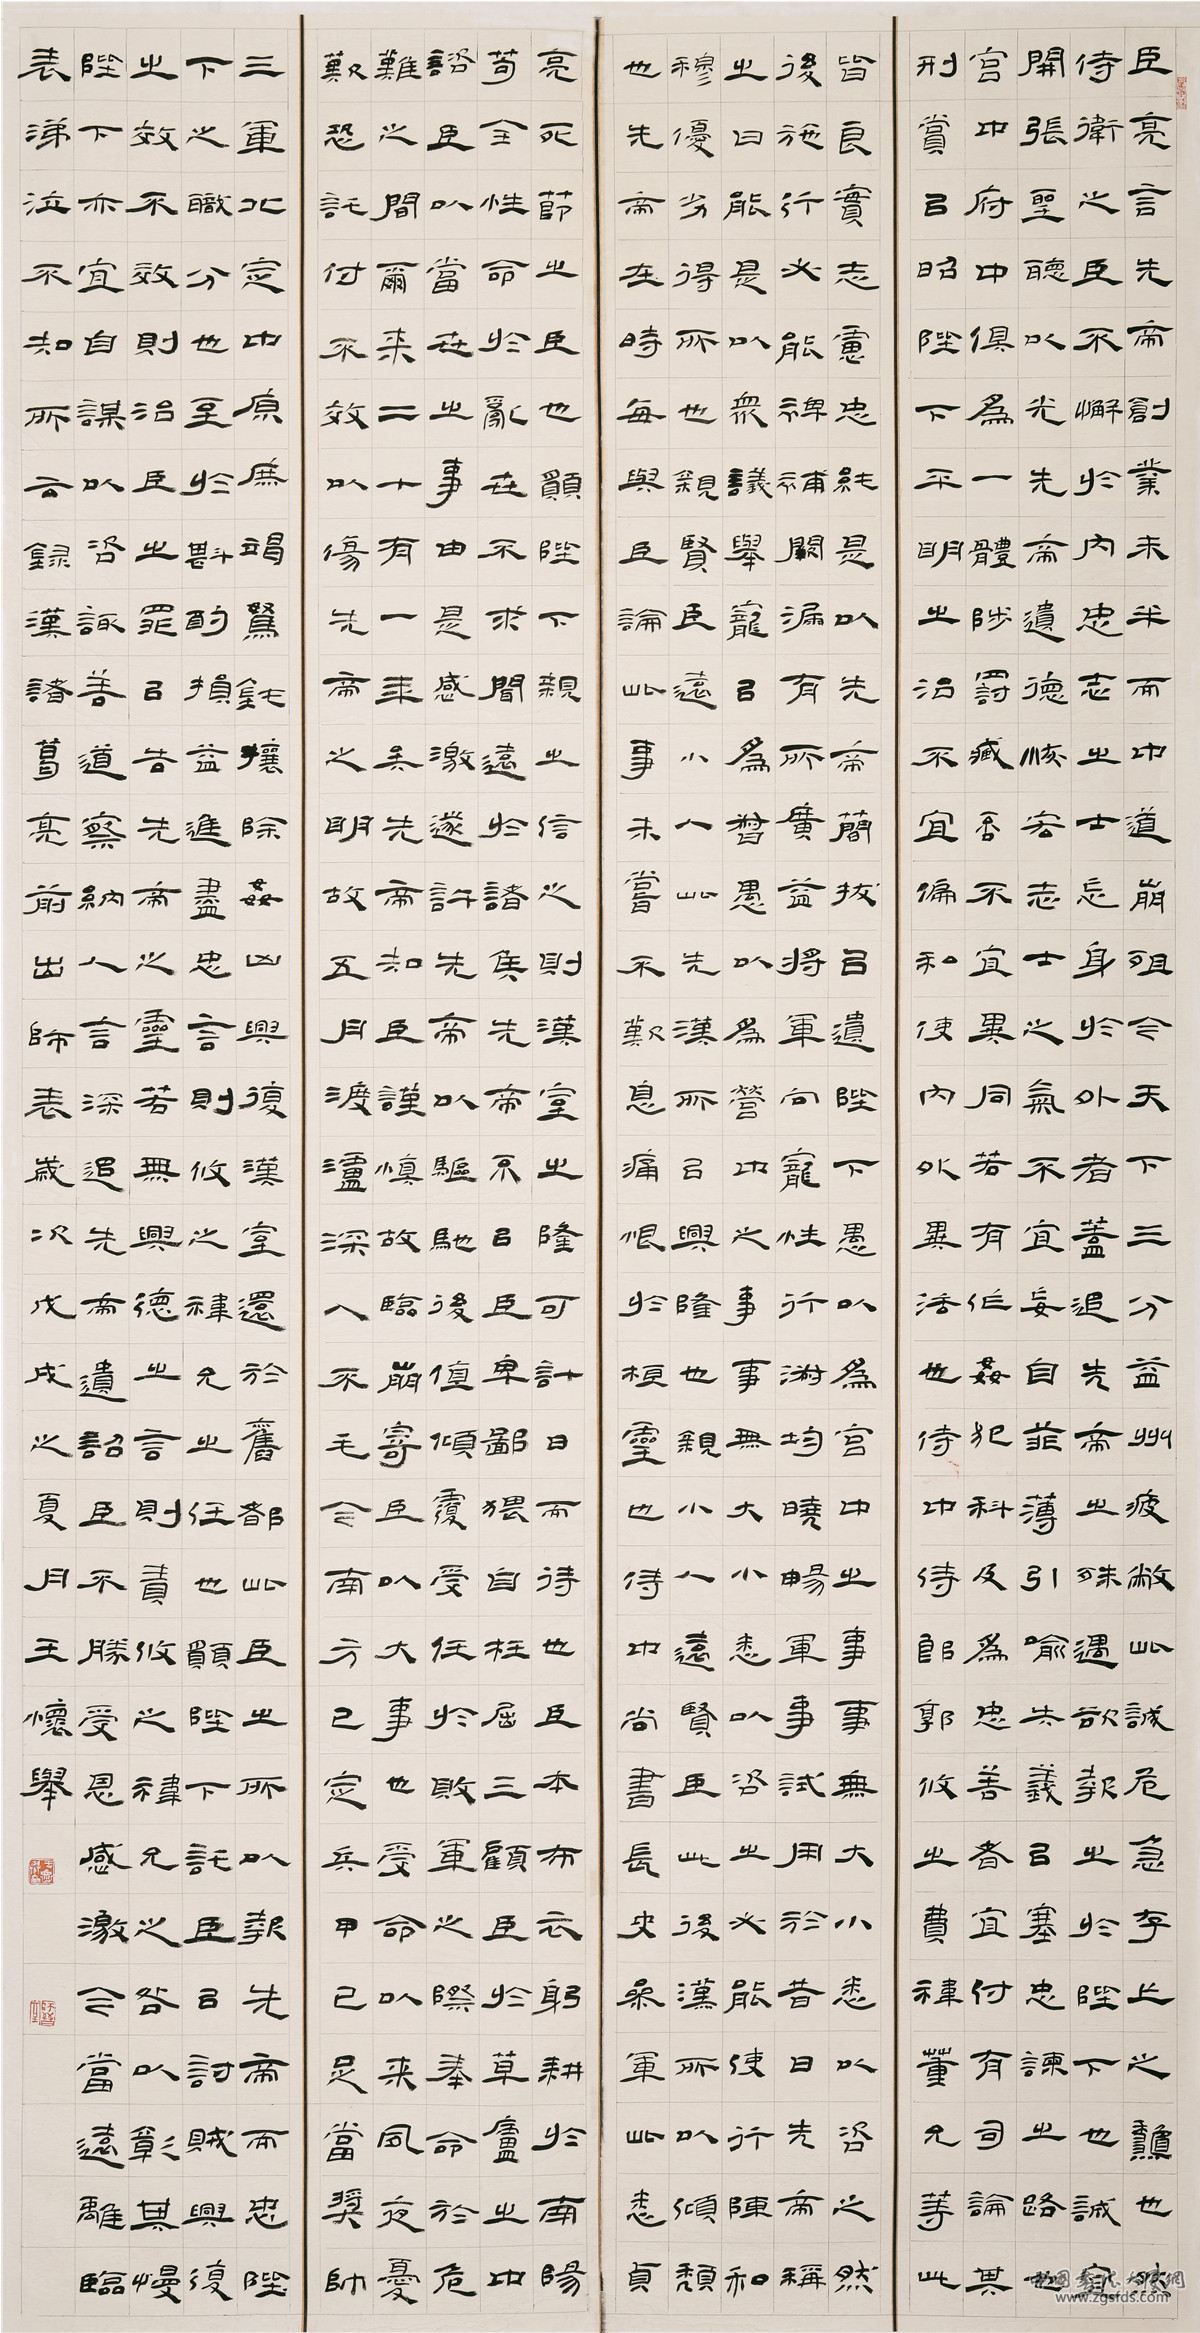 臣亮言先帝創業未半而中道崩殂今天下三分益州疲敝此誠危急存亡之秋也然
侍衛之臣不懈於內忠志之士忘身於外者蓋追先帝之殊遇欲報之於陛下也誠宜
開張聖聽以光先帝遺德恢宏志士之氣不宜妄自菲薄引喻失義以塞忠諫之路也
宮中府中俱為一體陟罰臧否不宜異同若有作姦犯科及為忠善者宜付有司論其
刑賞以昭陛下平明之治不宜偏私使內外異法也侍中侍郎郭攸之費禕董允等此
皆良實志慮忠純是以先帝簡拔以遺陛下愚以為宮中之事事無大小悉以咨之然
後施行必能裨補闕漏有所廣益將軍向寵性行淑均曉暢軍事試用於昔日先帝稱
之曰能是以眾議舉寵以為督愚以為營中之事事無大小悉以咨之必能使行陳和
穆優劣得所也親賢臣遠小人此先漢所以興隆也親小人遠賢臣此後漢所以傾頹
也先帝在時每與臣論此事未嘗不歎息痛恨於桓靈也侍中尚書長史參軍此悉貞
亮死節之臣也願陛下親之信之則漢室之隆可計日而待也臣本布衣躬耕於南陽
苟全性命於亂世不求聞達於諸侯先帝不以臣卑鄙猥自枉屈三顧臣於草廬之中
諮臣以當世之事由是感激遂許先帝以驅馳後值傾覆受任於敗軍之際奉命於危
難之間爾来二十有一年矣先帝知臣謹慎故臨崩寄臣以大事也受命以来夙夜憂
歎恐託付不效以傷先帝之明故五月渡瀘深入不毛今南方已定兵甲已足當獎帥
三軍北定中原庶竭駑鈍攘除姦凶興復漢室還於舊都此臣之所以報先帝而忠陛
下之職分也至於斟酌損益進盡忠言則攸之禕允之任也願陛下託臣以討賊興復
之效不效則治臣之罪以告先帝之靈若無興德之言則責攸之禕允之咎以彰其慢
陛下亦宜自謀以咨諏善道察納人言深追先帝遺詔臣不勝受恩感激今當遠離臨
表涕泣不知所云錄漢諸葛亮前出師表歲次戊戌之夏月王懷舉
www.zgsfds.com